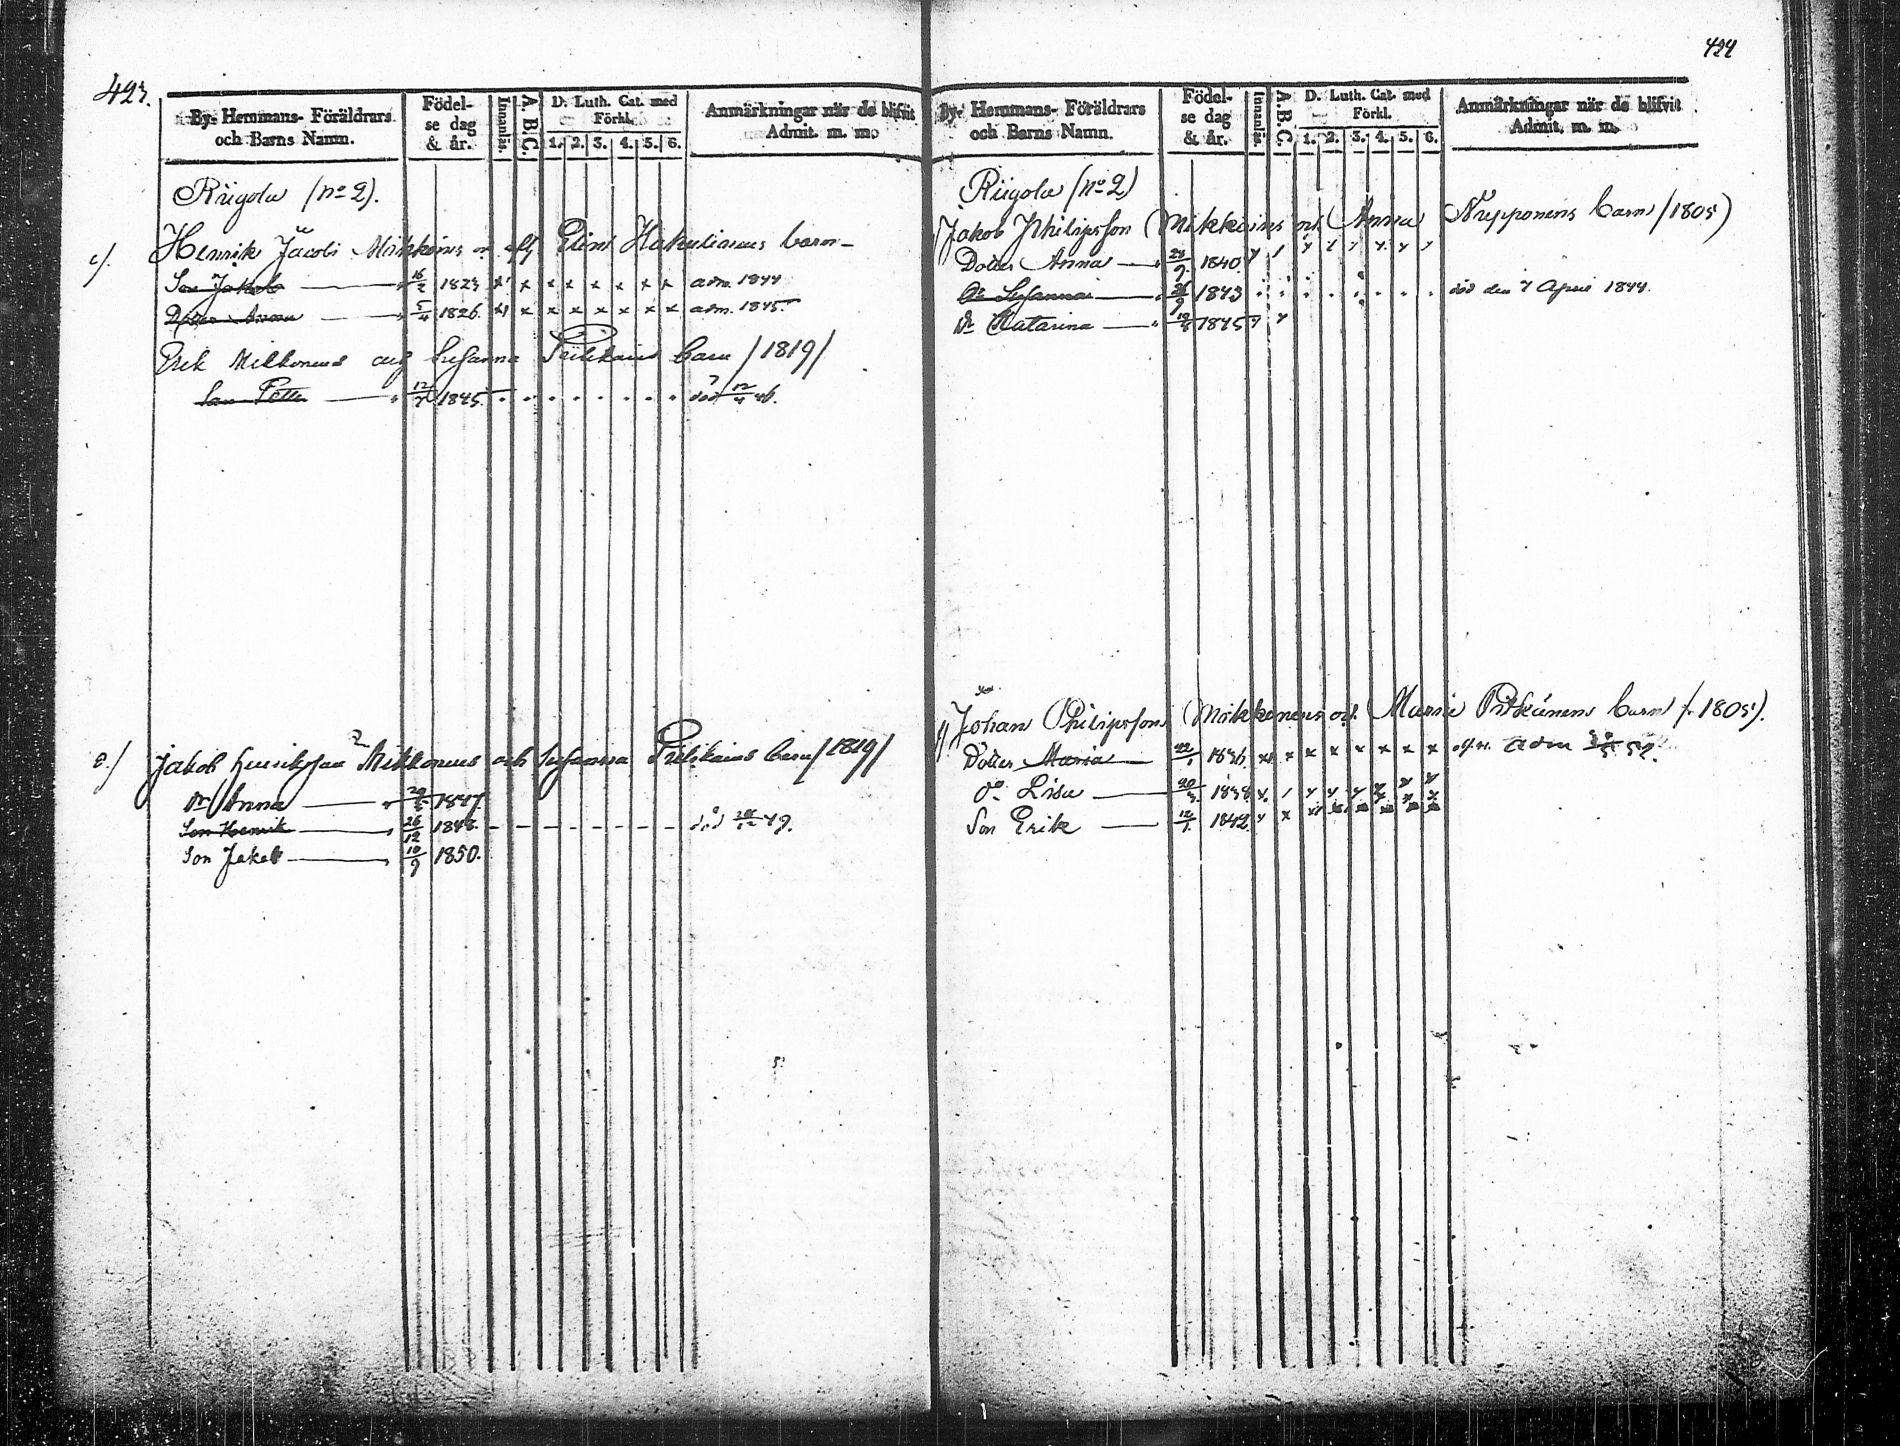 423.
By- Hemmans- Föräldrars och Barns Namn.
Födelse dag & år.
Innanläs.
A.B.C.
D. Luth. Cat. med Förkl.
1. 2. 3. 4. 5. 6.
Anmärkningar när de blifvit Admit. m. m.
Riigola (No 2).
c/. Henrik Jacobs Mikkoins o afl Elin Hakulinens barn
Son Jakob 16/2 1823 x x x x x x x x adm. 1844
Dotter Anna 5/4 1826 x x x x x x x x adm. 1845
Erik Mikkonens och Susanna Piilikains barn /1819/
Son Petter 12/7 1845. död 12/4 46.
e./ Jakob Henriksson Mikkonens och Susanna Piilikains barn /1819/
Dr Anna 1847
Son Henrik 26/12 1848. död 49.
Son Jakob 10/9 1850.
424
By- Hemmans- Föräldrars och Barns Namn.
Födelse dag & år.
Innanläs.
A.B.C.
D. Luth. Cat. med Förkl.
1. 2. 3. 4. 5. 6.
Anmärkningar när de blifvit Admit. m. m.
Riigola (No 2)
Jakob Philipsson Mikkoins o. Anna Nupponens barn /1805)
Dotter Anna 1840
Dr Susanna 26/9 1843 död den 7 April 1844.
Dr Katarina 10/8 1845
Johan Philipsson Mikkonens och Maria Pitkänens barn (1805).
Dotter Maria 22/1 1836 x x x x x x x x adm 52.
Do Lisa 1838
Son Erik 12/1. 1842